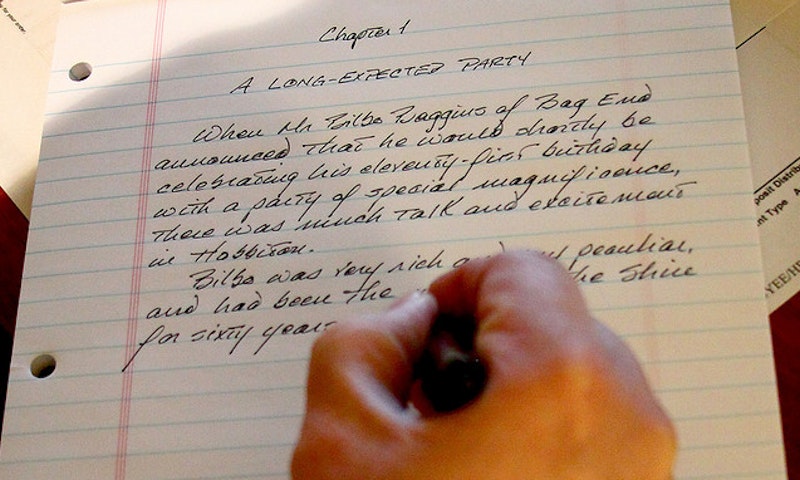 Chapter 1
A LONG-EXPECTED PARTY
When Mr Bilbo Baggins of Bag End
announced that he would shortly be
celebrating his eleventy-first birthday
with a party of special magnificence,
there was much talk and excitement
in Hobbiton.
Bilbo was very rich and peculiar,
and had been the the Shire
for sixty years
posit Distrib
nt Type A
YEE/HE